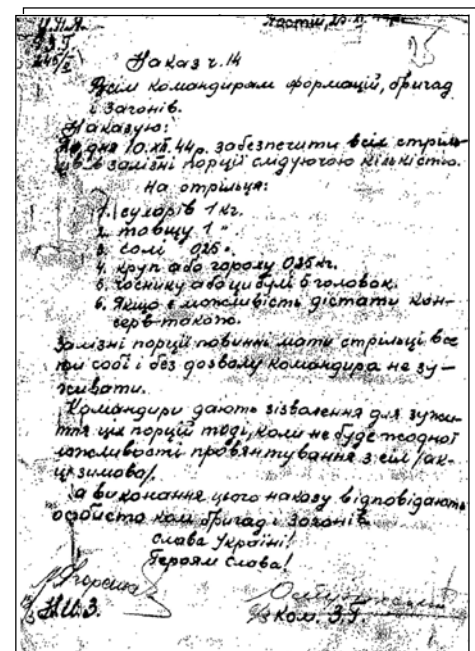 У.П.А.
З.Г.
Постій,
Наказ ч. 14
Всім командирам формацій, бригад
і загонів.
Наказую:
До дня 10.XII.44р. забезпечити всіх стріль-
ців в залізні порції слідуючою кількістю.
На стрільця:
1. сухарів 1 кг.
2. товщу 1 "
3. солі 0,25 "
4. круп або гороху 0,25 кг.
5. чоснику або цибулі 5 головок.
6. Якщо є можливість дістати кон-
серв також.
Залізні порції повинні мати стрільці все
при собі і без дозволу командира не зу-
живати.
Командири дають зізволення для зужи-
ття цих порцій тоді, коли не буде жодної
можливости провянтування з сіл /ак-
ція зимова/.
За виконання цього наказу відповідають
особисто ком. бригад і загонів.
Слава Україні!
Героям Слава!
Н.Ш.З.
Ком. З.Г.